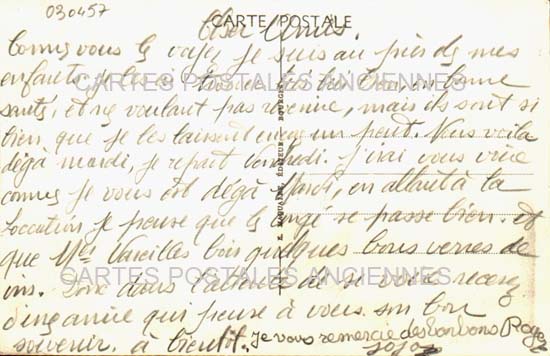 030457
CARTE POSTALE
Cher Amis.
Comme vous le voyez je suis au près de mes
enfants je les ai trouvé très bien, en bonne
santé, et ne voulant pas revenir, mais ils sont si
bien que je les laissent encore un peut. Nous voila
déjà mardi, je repart vendredi. J'irai vous voire
comme je vous est déjà dit, en allant à la
location je pense que le congé se passe bien. et
que Mr Vareilles bois quelques bons verres de
vins. Donc dans l'attente de se voire recevez
d'ingannie qui pense à vous son bon
souvenir. à bientôt. Je vous remercie des bonbons Roger
Jojo
CARTES POSTALES ANCIENNES
CARTES POSTALES ANCIENNES